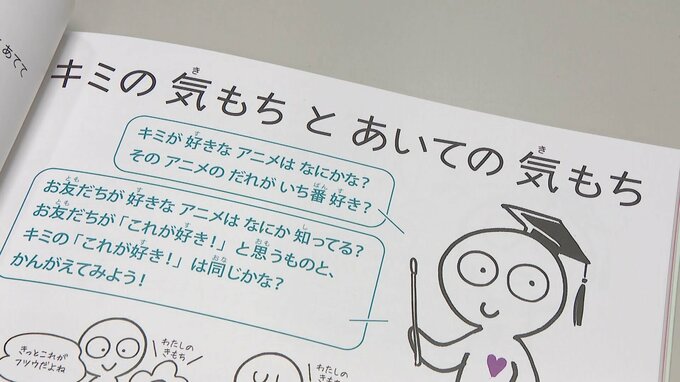 あてて
キミの 気もち と あいての 気もち
キミが 好きな アニメは なにかな?
その アニメの だれが いち番 好き?
お友だちが 好きな アニメは なにか 知ってる?
お友だちが「これが好き!」と思うものと、
キミの「これが好き!」は同じかな?
かんがえてみよう!
きっとこれが
フツウだよね
わたしの
きもち
わたしの
きもち